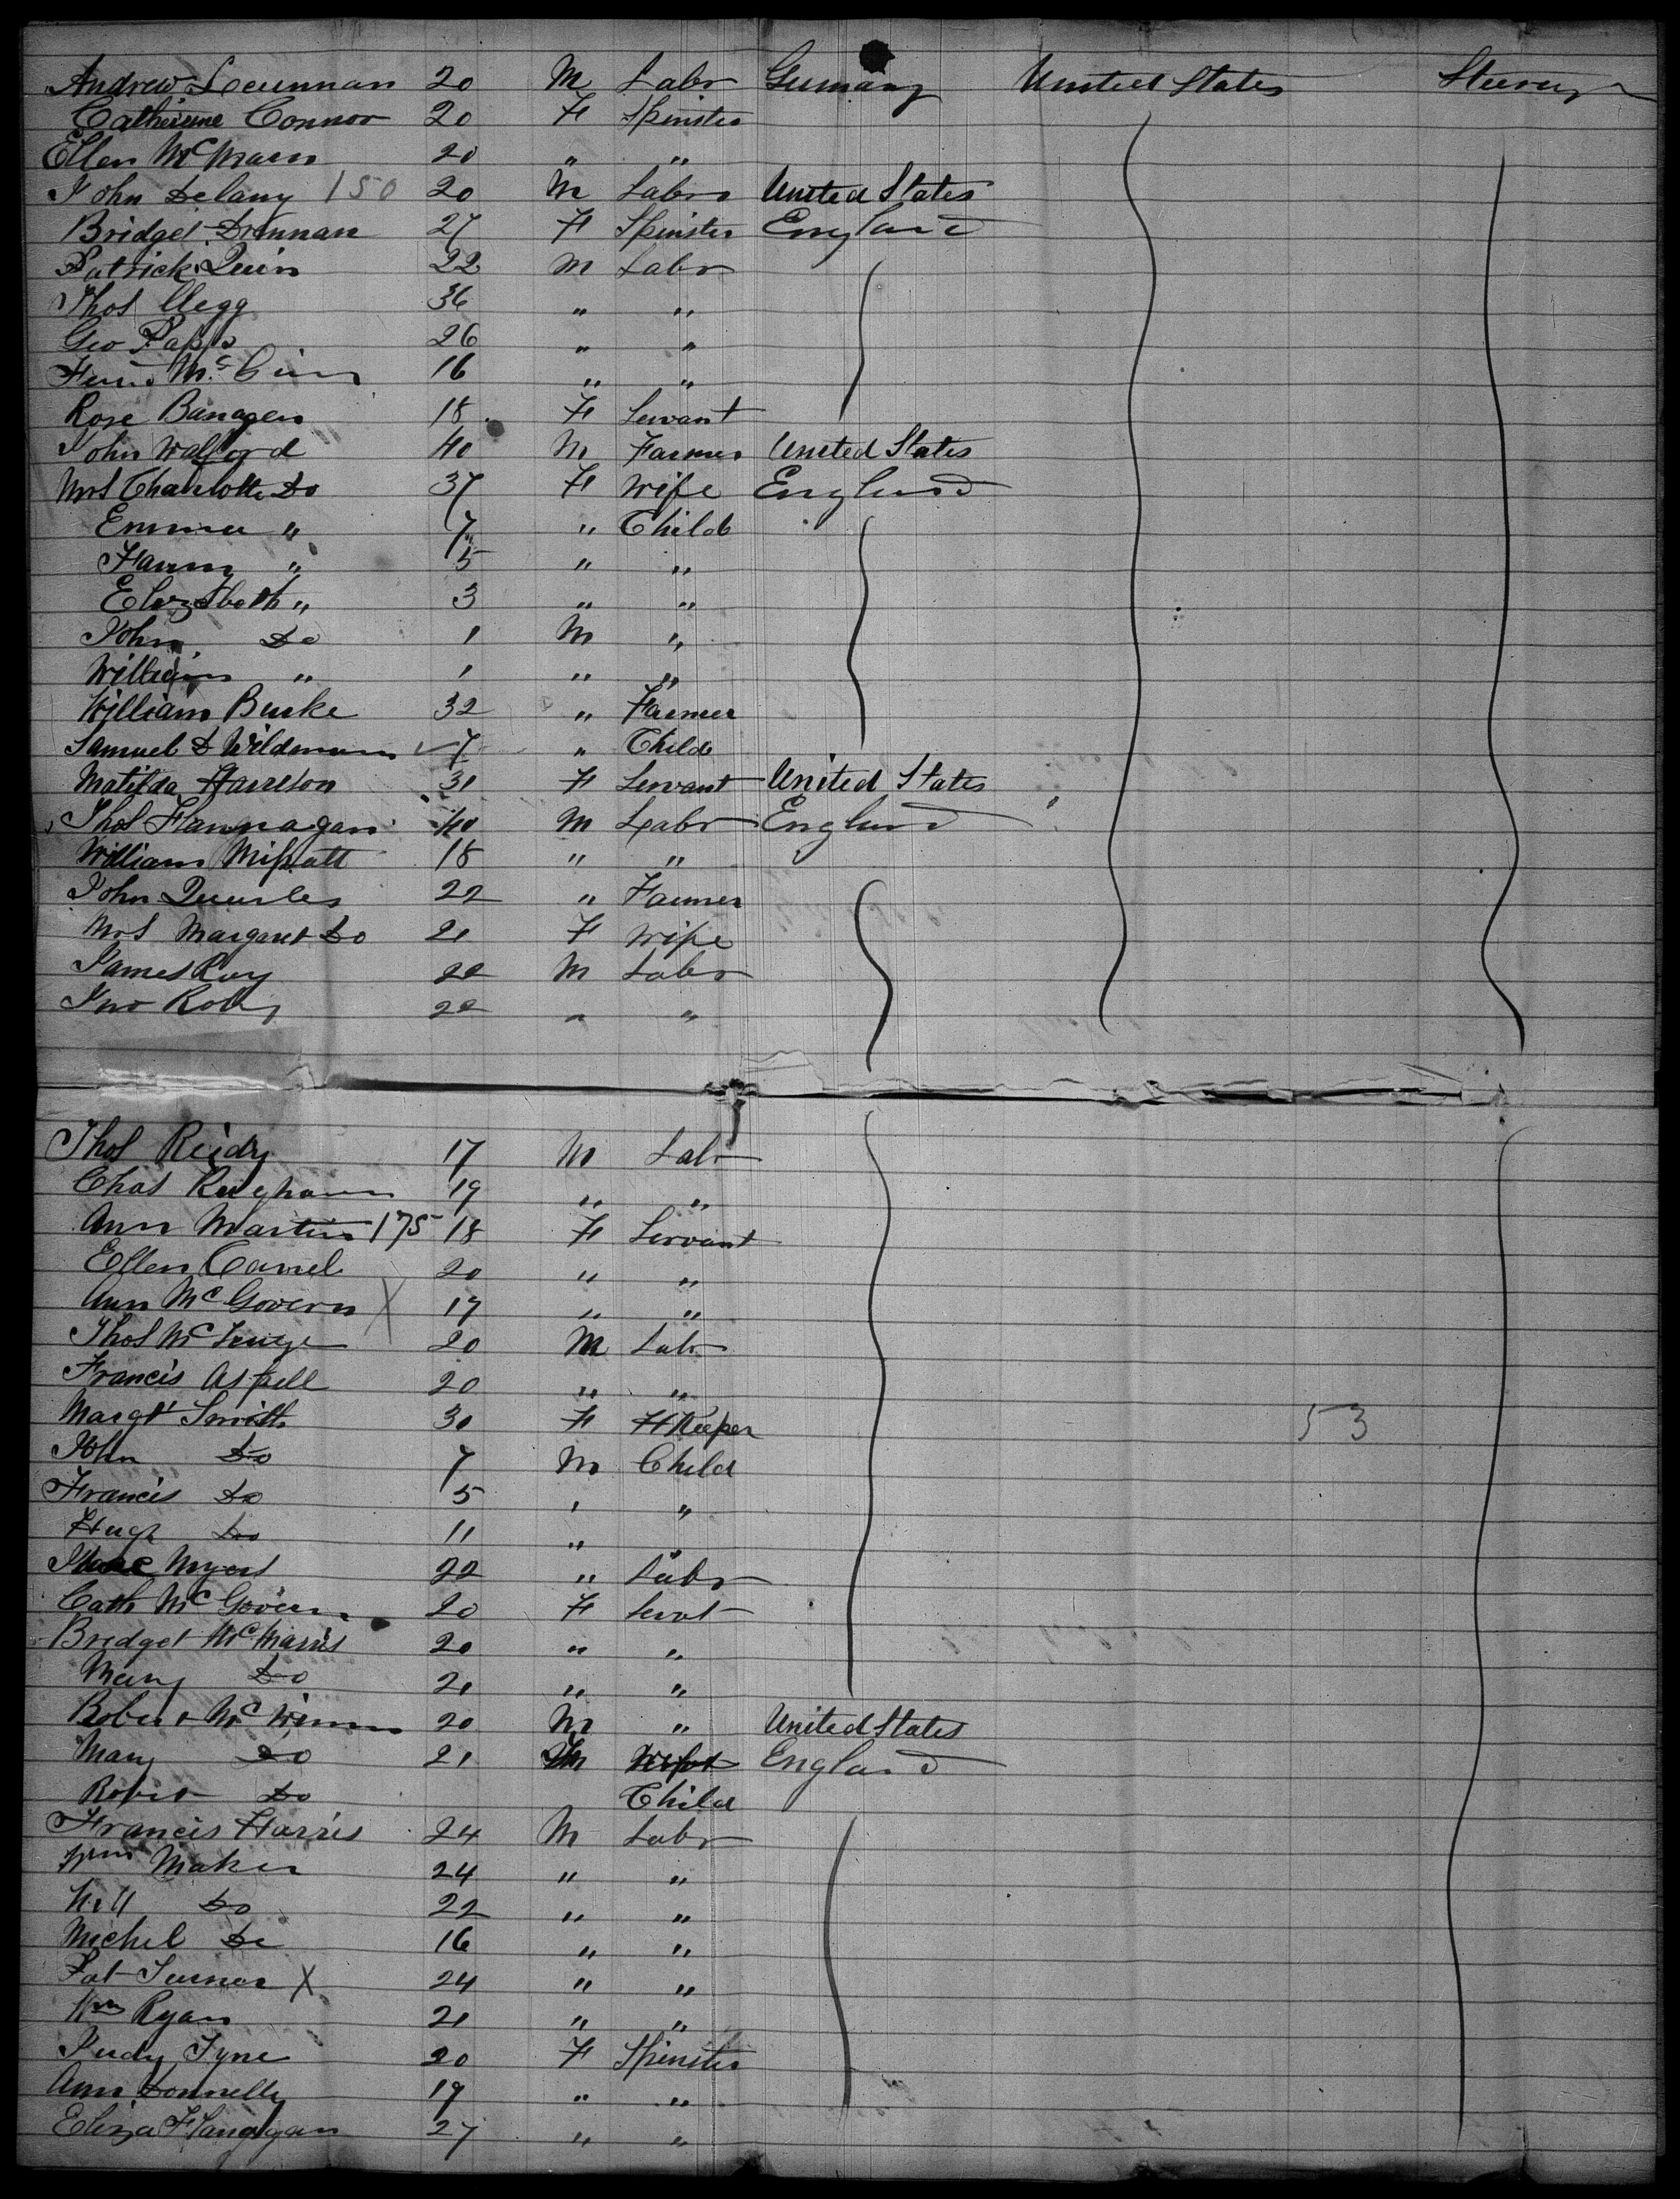 Andrew 20 M Labr Germany United States Steerage
Catherine Connor 20 F Spinster
Ellen McMann 20 " "
John Delany 150 20 M Labr United States
Bridget Drennan 27 F Spinster England
Patrick Quin 22 M Labr
Thos Clegg 36 " "
Geo Papps 26 " "
Mc 16 " "
Rose Banagen 18 F Servant
John Walford 40 M Farmer United States
Mrs Charlotte Do 37 F Wife England
Emma " 7 " Child
Fanny " 5 " "
Elizabeth " 3 " "
John Do 1 M "
William " 1 " "
William Burke 32 " Farmer
Samuel D Wildman 7 " Child
Matilda Harrison 31 F Servant United States
Thos Flannagan 40 M Labr England
William 18 " "
John Quarles 22 " Farmer
Mrs Margaret Do 21 F Wife
James Roy 22 M Labr
Jno Roby 22 " "
Thos Reidy 17 M Labr
Chas 19 " "
Ann Martin 175 18 F Servant
Ellen Carrel 20 " "
Ann McGovern X 17 " "
Thos 20 M Labr
Francis Aspell 20 " "
Margt Smith 30 F HKeeper 53
John Do 7 M Child
Francis Do 5 " "
Hugh Do 11 " "
Isaac Myers 22 " Labr
Cath McGovern 20 F Servt
Bridget McManis 20 " "
Mary Do 21 " "
Robert Mc 20 M " United States
Mary Do 21 England
Robert Do Child
Francis Harris 24 M Labr
Wm Maher 24 " "
Do 22 " "
Michel Do 16 " "
Pat Turner X 24 " "
Wm Ryan 21 " "
Judy Tyne 20 F Spinster
Ann Donnelly 19 " "
Eliza Flanagan 27 " "